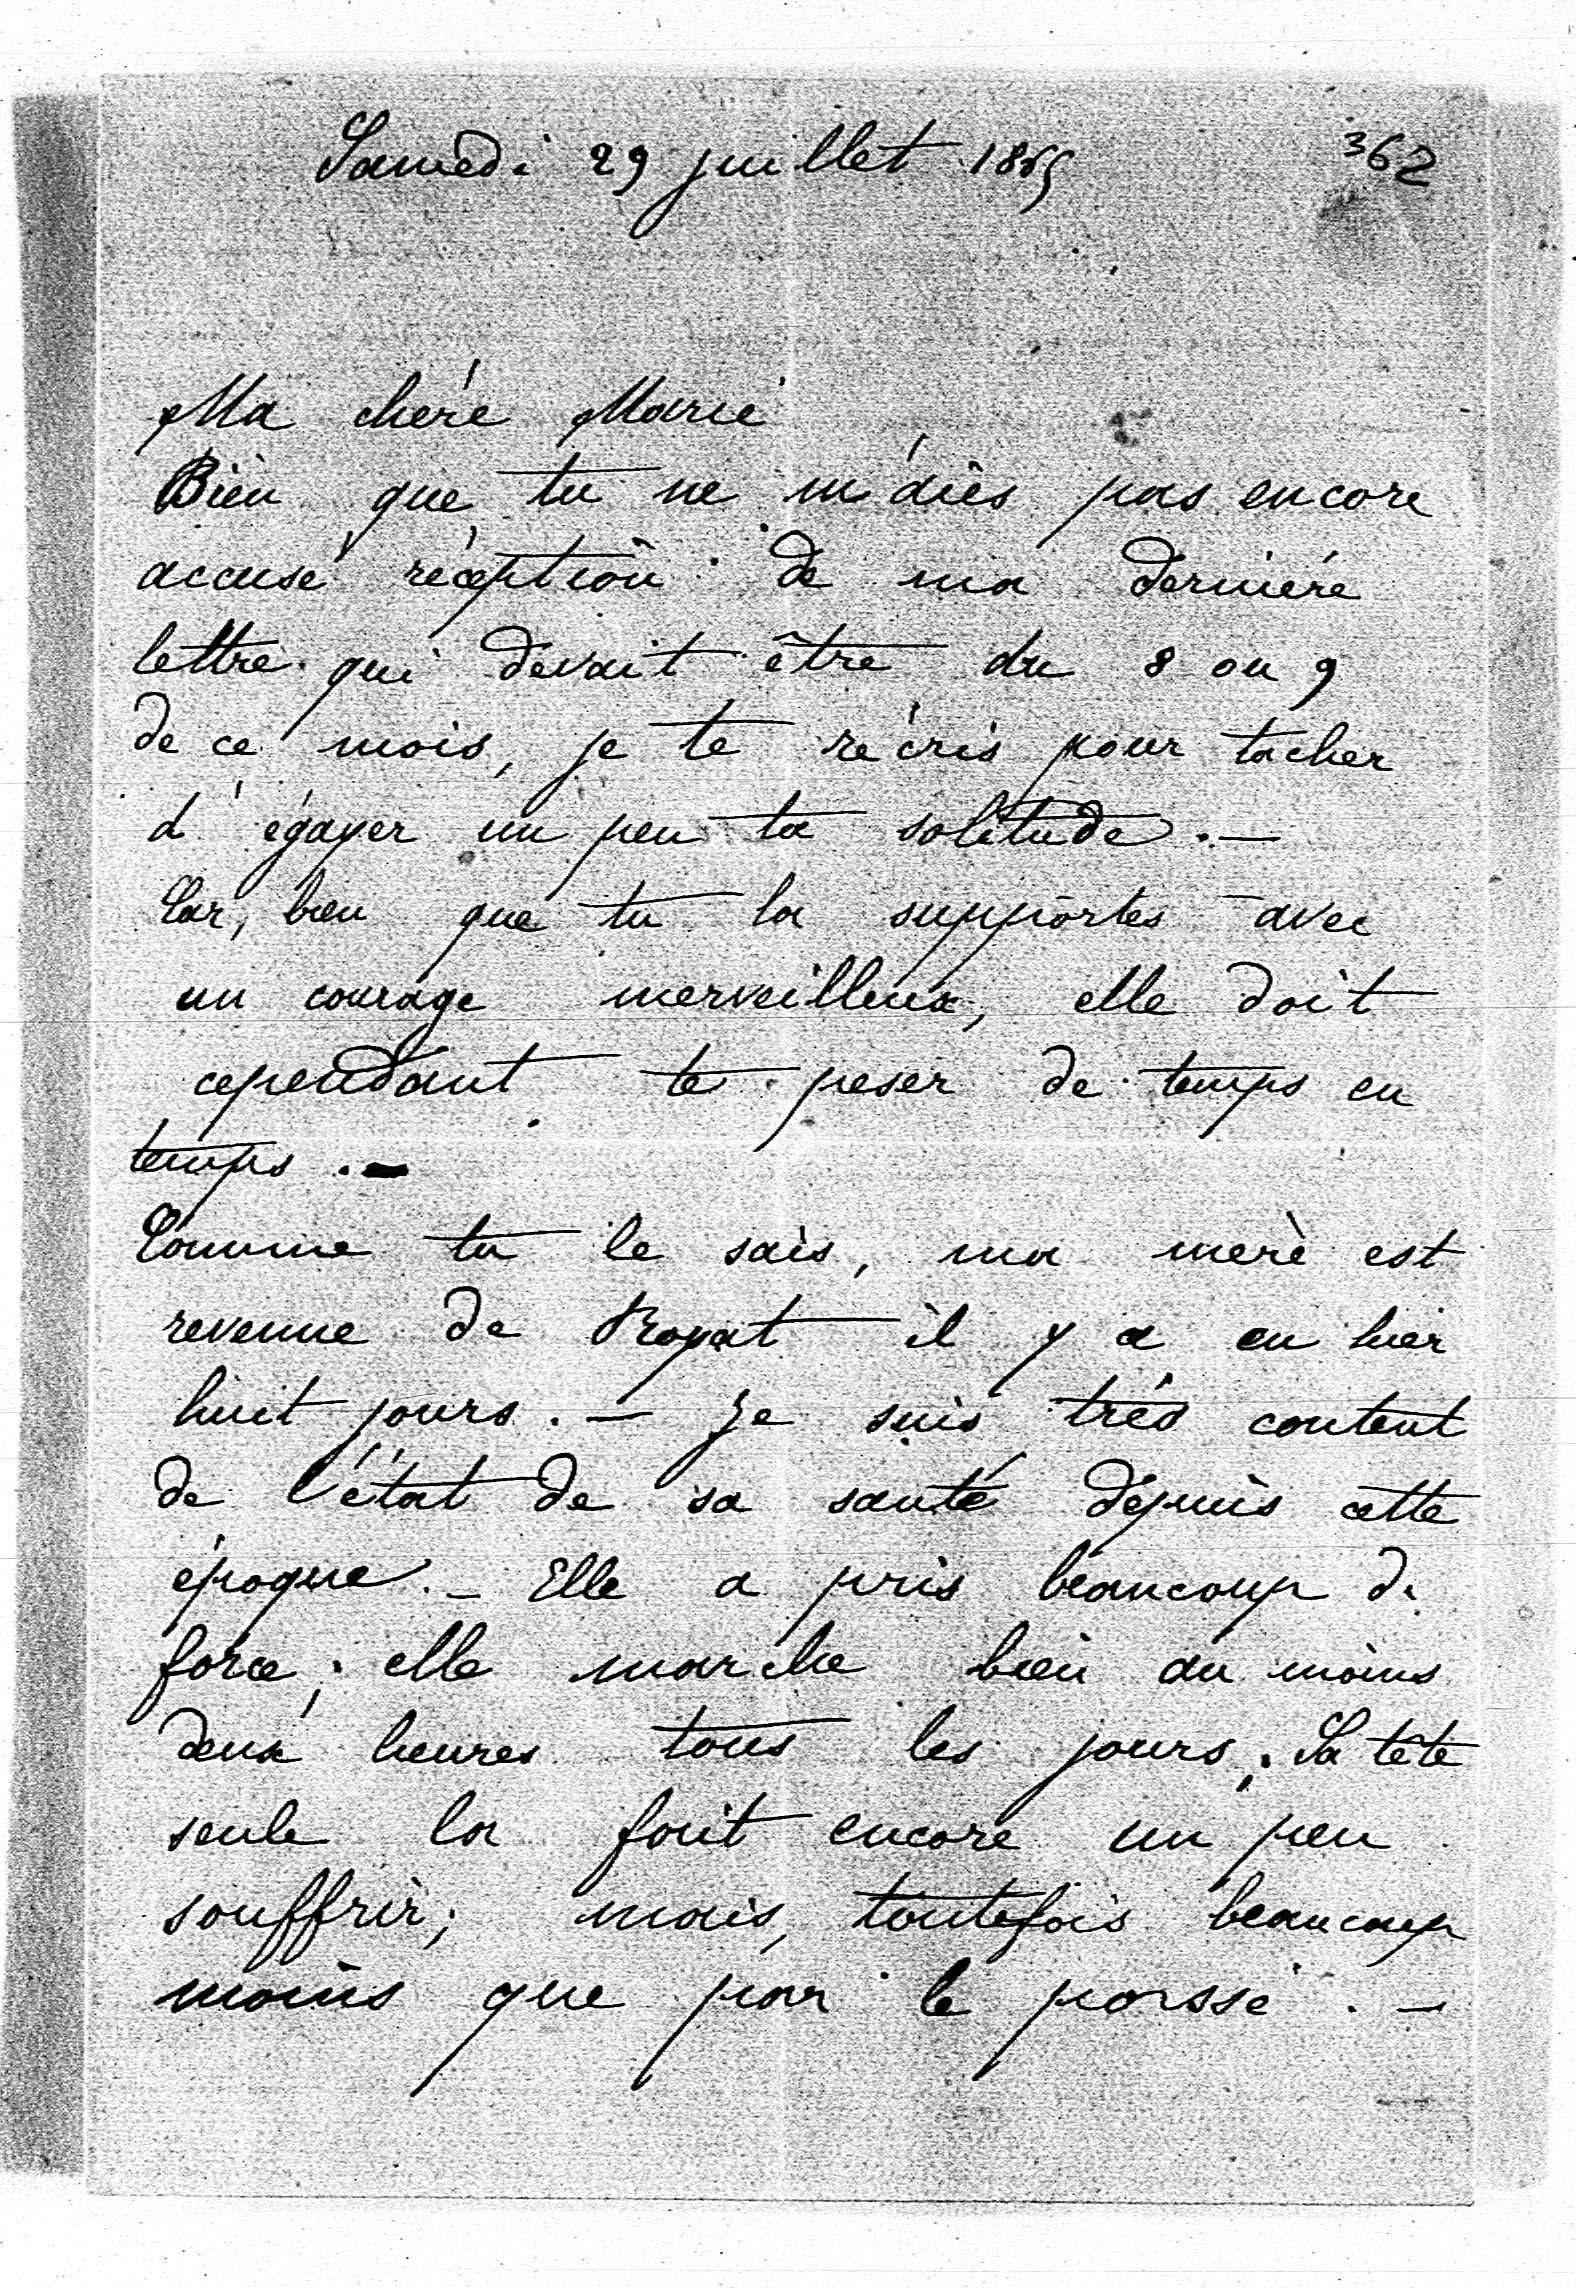 Samedi 29 juillet 1865 362
Ma chère Marie
Bien que tu ne m'aies pas encore
accusé réception de ma dernière
lettre qui devait être du 8 ou 9
de ce mois, je te récris pour tacher
d'égayer un peu ta solitude. —
Car, bien que tu la supportes avec
un courage merveilleux, elle doit
cependant te peser de temps en
temps. —
Comme tu le sais, ma mère est
revenue de Royat il y a eu hier
huit jours. — Je suis très content
de l'état de sa santé depuis cette
époque. — Elle a pris beaucoup de
force; elle marche bien au moins
deux heures tous les jours. Sa tête
seule la fait encore un peu
souffrir; mais, toutefois beaucoup
moins que par le passé. —